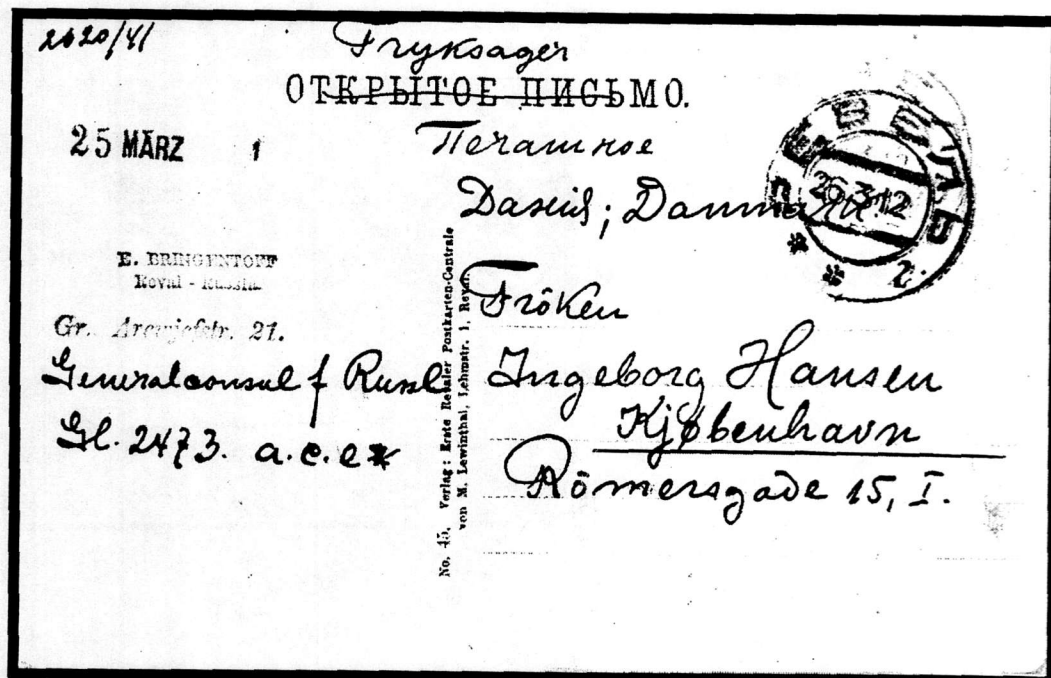 2620/41
Tryksager
ОТКРЫТОЕ ПИСЬМО.
25 MÄRZ 1
Печатное
РЕВЕЛЬ
26.3.12
Данія; Danmark
E. BRINGENTOFF
Reval - Russia.
Gr. 21.
Generalconsul f Russl
Gl. 2473. a.c.e*
No. 45. Verlag: Erste Revaler Postkarten-Centrale
von M. Lewinthal, Lehmstr. 1, Reval.
Fröken
Ingeborg Hansen
Kjøbenhavn
Römersgade 15, I.